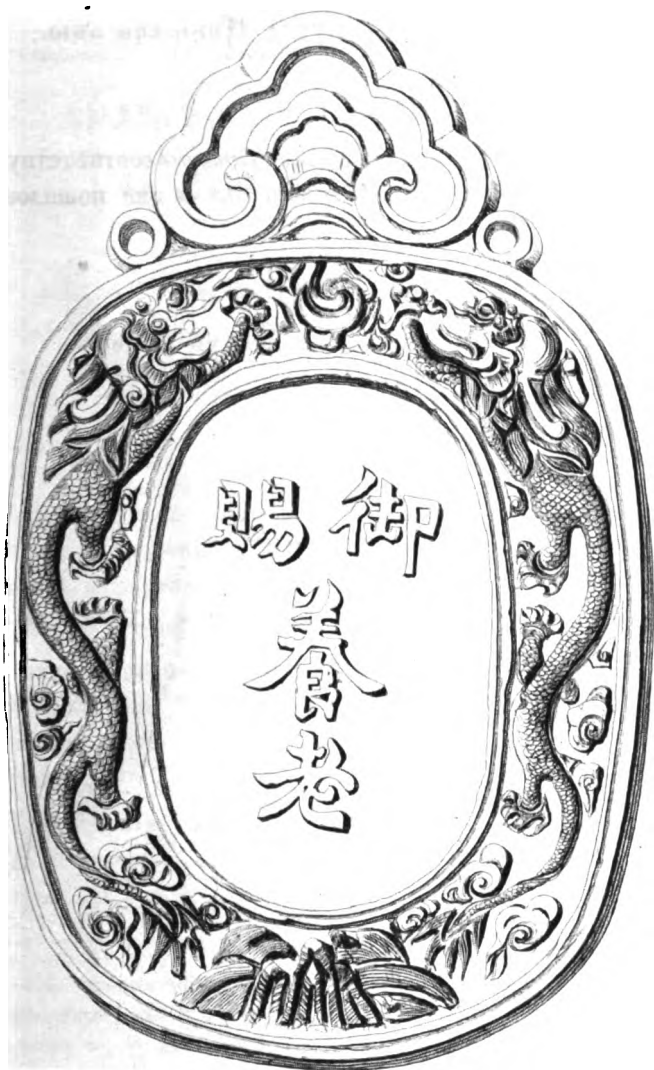 御賜
養老